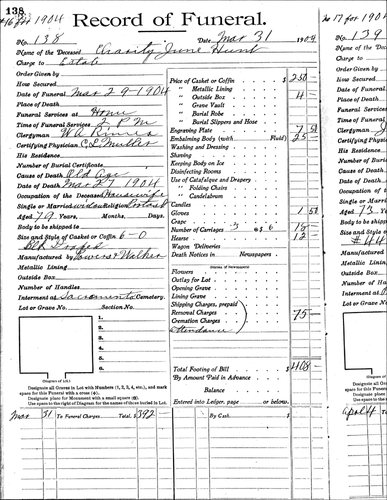 138
#16 for 1904
Record of Funeral.
No. 138 Date Mar 31 1904
Name of the Deceased Charity June Hunt
Charge to Estate
Order Given by
How Secured
Date of Funeral Mar 29-1904
Place of Death
Funeral Services at Home
Time of Funeral Services 2 PM
Clergyman W.C. Rimes
Certifying Physician
His Residence
Number of Burial Certificate
Cause of Death Old Age
Date of Death Mar 27 1904
Occupation of the Deceased Housewife
Single or Married widow Religion
Aged 79 Years, Months, Days
Body to be shipped to
Size and Style of Casket or Coffin 6-0
Manufactured by Walker
Metallic Lining
Outside Box
Number of Handles
Interment at Sacramento Cemetery.
Lot or Grave No. Section No.
1.
2.
3.
4.
5.
6.
(Diagram of Lot.)
Designate all Graves in Lot with Numbers (1, 2, 3, 4, etc.), and mark
space for this Funeral with a cross
Designate place for Monument with a small square
Use space to the right of Diagram for the names of those buried in Lot.
Price of Casket or Coffin $ 250
" Metallic Lining
" Outside Box 4
" Grave Vault
" Burial Robe
" Burial Slippers and Hose
Engraving Plate
Embalming Body (with Fluid) 25
Washing and Dressing
Shaving
Keeping Body on Ice
Disinfecting Rooms
Use of Catafalque and Drapery
" Folding Chairs
" Candelabrum
Candles
Gloves 1 50
Crape
Number of Carriages 3 @ $ 6 18
Hearse 12
Wagon Deliveries
Death Notices in Newspapers
(Names of Newspapers)
Flowers
Outlay for Lot
Opening Grave
Lining Grave
Shipping Charges, prepaid
Removal Charges
Cremation Charges
Attendance
75
Total Footing of Bill $408
By Amount Paid in Advance
Balance
Entered into Ledger, page or below.
Mar 31 To Funeral Charges Total, $392 By Cash $
No 17 for 1904
No. 139
Name of the
Charge to
Order Given
How Secured
Date of Funeral
Place of Death
Funeral Services
Time of Funeral
Clergyman
Certifying
His Residence
Number of
Cause of
Date of
Occupation
Single or
Aged 73
Body to be
Size and
#44
Manufactured
Metallic
Outside
Number of
Interment
Lot or Grave